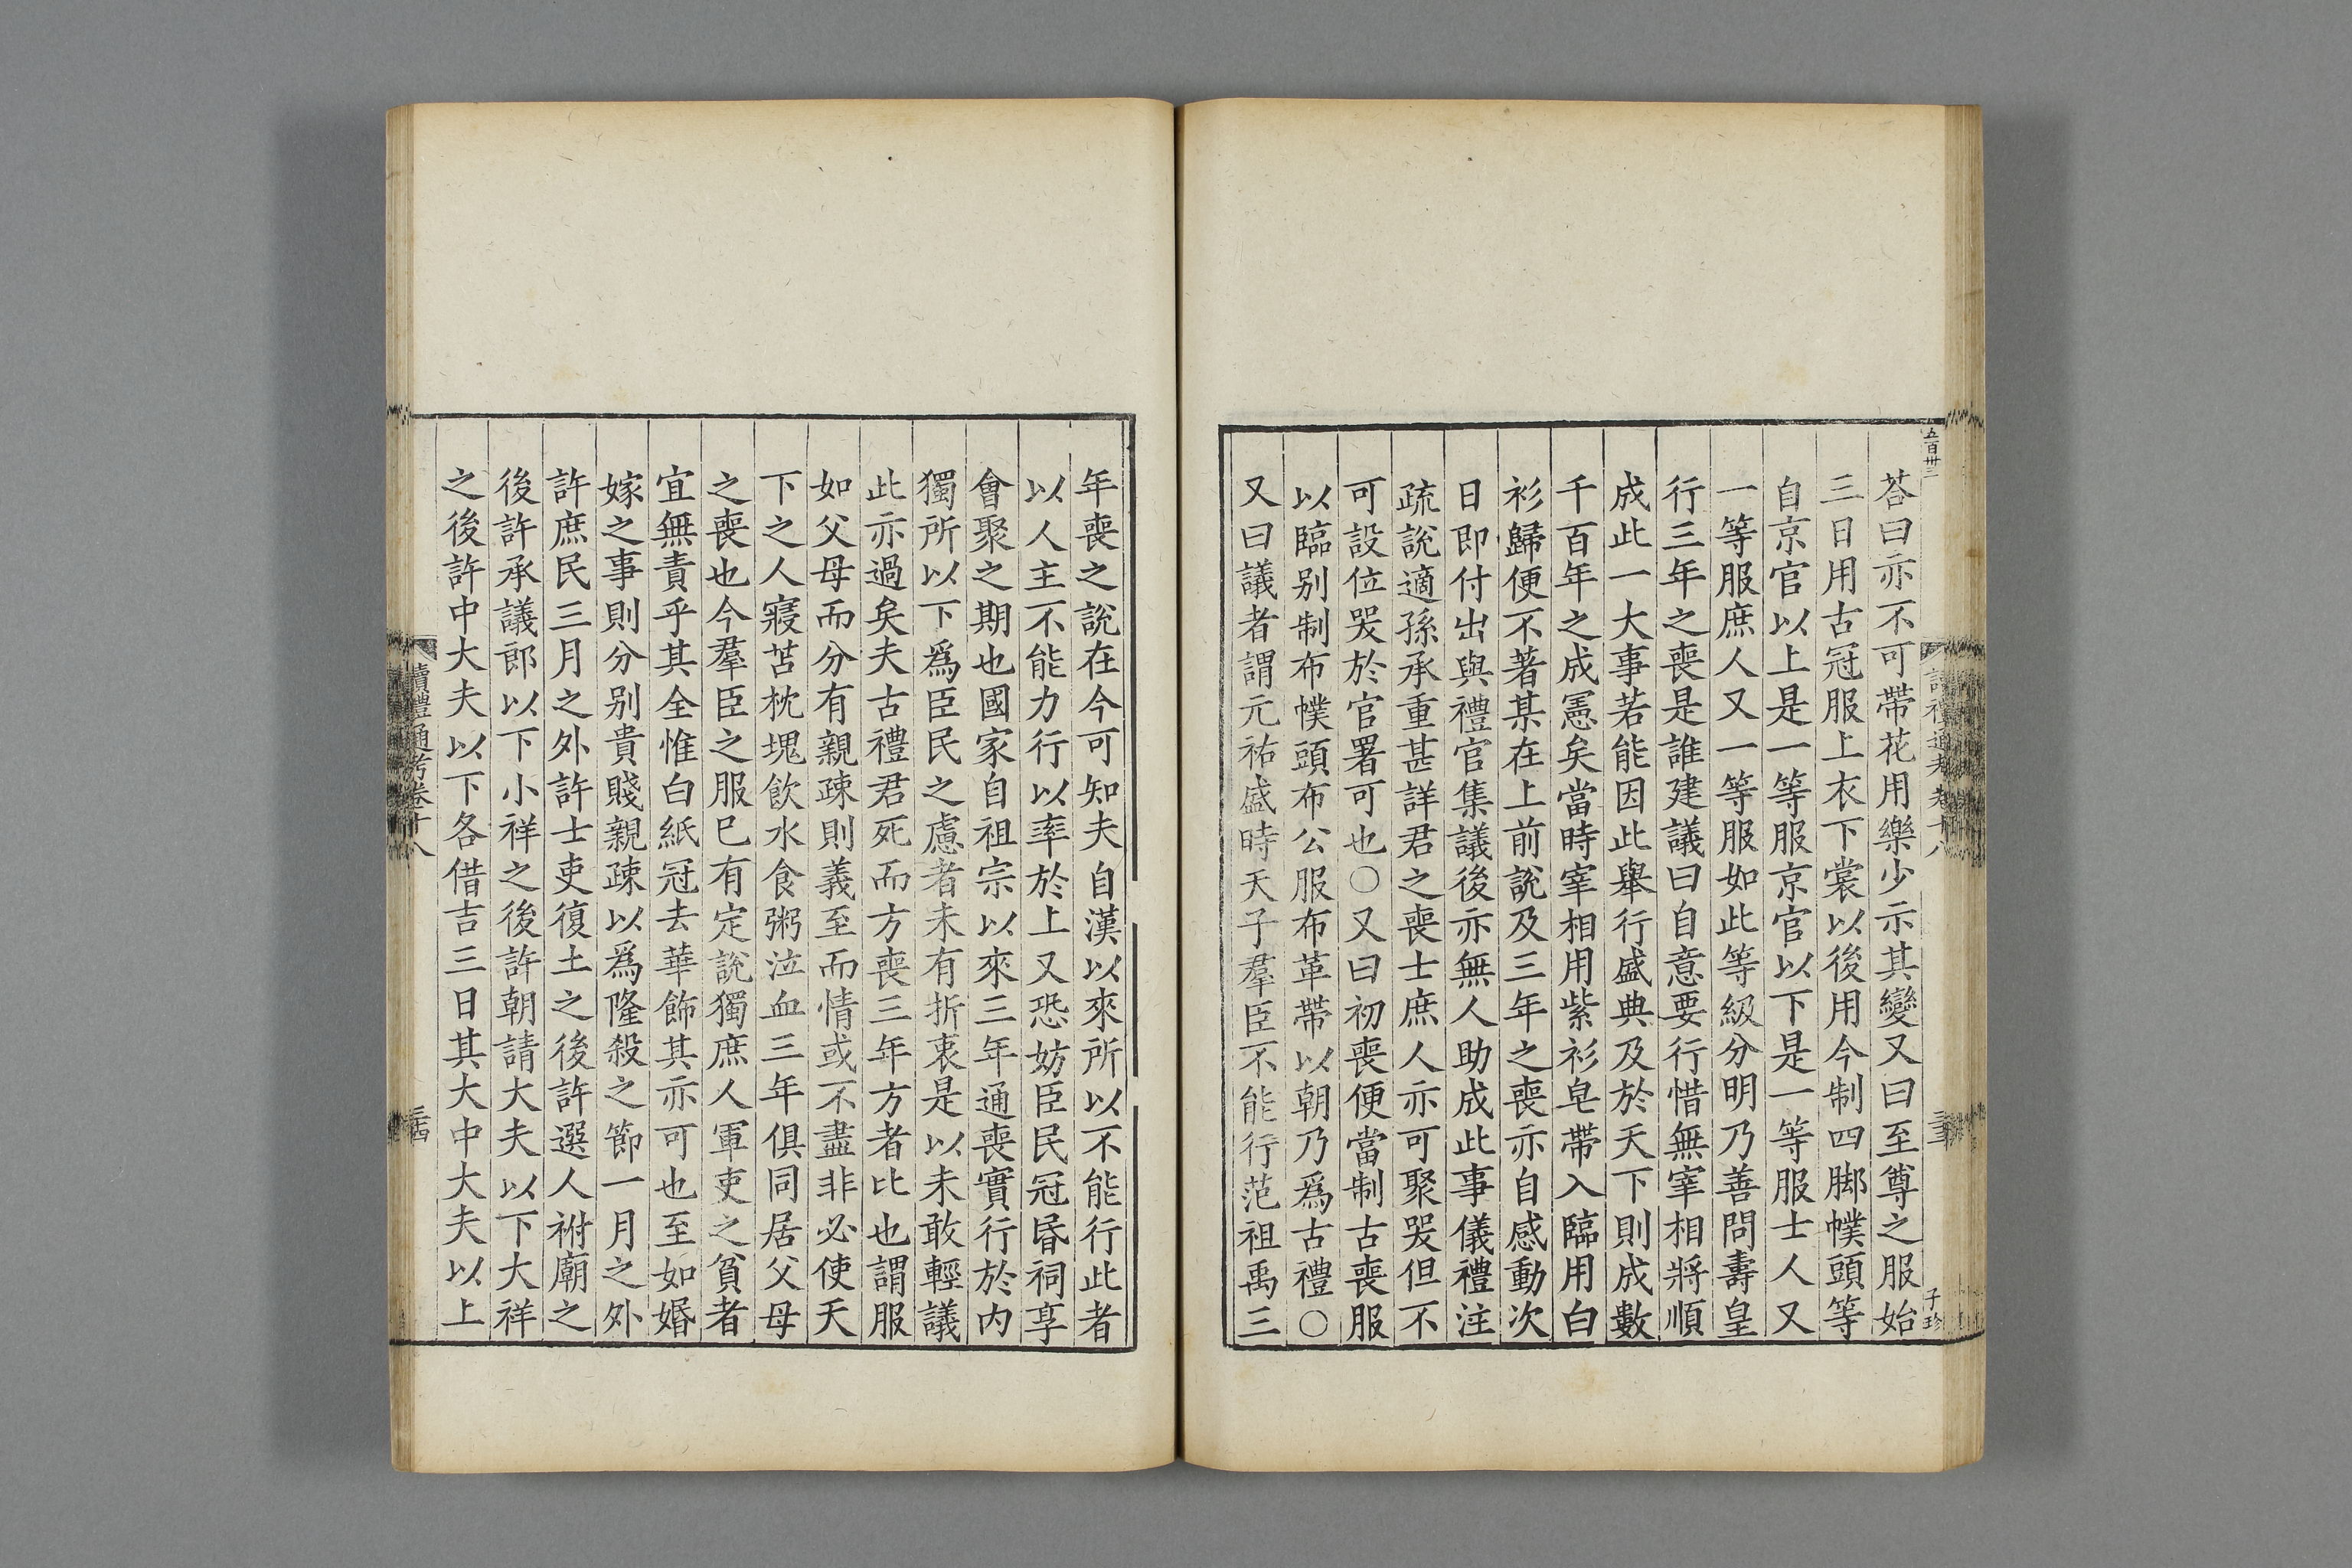 五百卅三
荅曰亦不可帶花用樂少示其變又曰至尊之服始
三日用古冠服上衣下裳以後用今制四脚幞頭等
自京官以上是一等服京官以下是一等服士人又
一等服庶人又一等服如此等級分明乃善問壽皇
行三年之喪是誰建議曰自意要行惜無宰相將順
成此一大事若能因此舉行盛典及於天下則成數
千百年之成憲矣當時宰相用紫衫皂帶入臨用白
衫歸便不著某在上前說及三年之喪亦自感動次
日即付出與禮官集議後亦無人助成此事儀禮注
疏說適孫承重甚詳君之喪士庶人亦可聚哭但不
可設位哭於官署可也○又曰初喪便當制古喪服
以臨别制布幞頭布公服布革帶以朝乃爲古禮○
又曰議者謂元祐盛時天子羣臣不能行范祖禹三
讀禮通考卷十八
子珍
年喪之說在今可知夫自漢以來所以不能行此者
以人主不能力行以率於上又恐妨臣民冠昏祠享
會聚之期也國家自祖宗以來三年通喪實行於内
獨所以下爲臣民之慮者未有折衷是以未敢輕議
此亦過矣夫古禮君死而方喪三年方者比也謂服
如父母而分有親疎則義至而情或不盡非必使天
下之人寢苫枕塊飲水食粥泣血三年俱同居父母
之喪也今羣臣之服巳有定說獨庶人軍吏之貧者
宜無責乎其全惟白紙冠去華飾其亦可也至如婚
嫁之事則分别貴賤親疎以爲隆殺之節一月之外
許庶民三月之外許士吏復土之後許選人祔廟之
後許承議郎以下小祥之後許朝請大夫以下大祥
之後許中大夫以下各借吉三日其大中大夫以上
讀禮通考卷十八